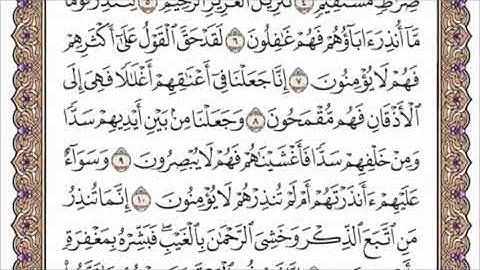 صِرَٰطٍ مُّسْتَقِيمٍ ٤ تَنزِيلَ ٱلْعَزِيزِ ٱلرَّحِيمِ ٥ لِتُنذِرَ قَوْمًا
مَّآ أُنذِرَ ءَابَآؤُهُمْ فَهُمْ غَٰفِلُونَ ٦ لَقَدْ حَقَّ ٱلْقَوْلُ عَلَىٰٓ أَكْثَرِهِمْ
فَهُمْ لَا يُؤْمِنُونَ ٧ إِنَّا جَعَلْنَا فِىٓ أَعْنَٰقِهِمْ أَغْلَٰلًا فَهِىَ إِلَى
ٱلْأَذْقَانِ فَهُم مُّقْمَحُونَ ٨ وَجَعَلْنَا مِنۢ بَيْنِ أَيْدِيهِمْ سَدًّا
وَمِنْ خَلْفِهِمْ سَدًّا فَأَغْشَيْنَٰهُمْ فَهُمْ لَا يُبْصِرُونَ ٩ وَسَوَآءٌ
عَلَيْهِمْ ءَأَنذَرْتَهُمْ أَمْ لَمْ تُنذِرْهُمْ لَا يُؤْمِنُونَ ١٠ إِنَّمَا تُنذِرُ
مَنِ ٱتَّبَعَ ٱلذِّكْرَ وَخَشِىَ ٱلرَّحْمَٰنَ بِٱلْغَيْبِ ۖ فَبَشِّرْهُ بِمَغْفِرَةٍ